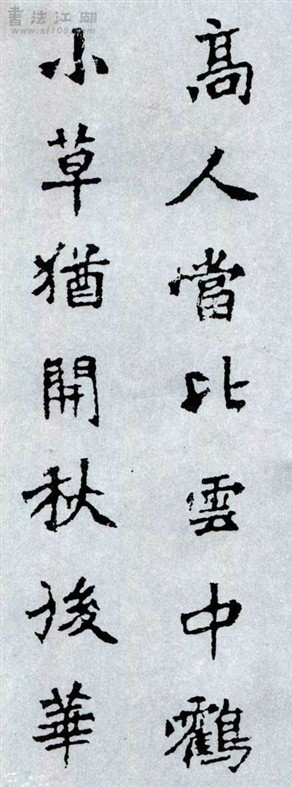 高人當比雲中鶴
小草猶開秋後華
書法江湖
www.sf108.com